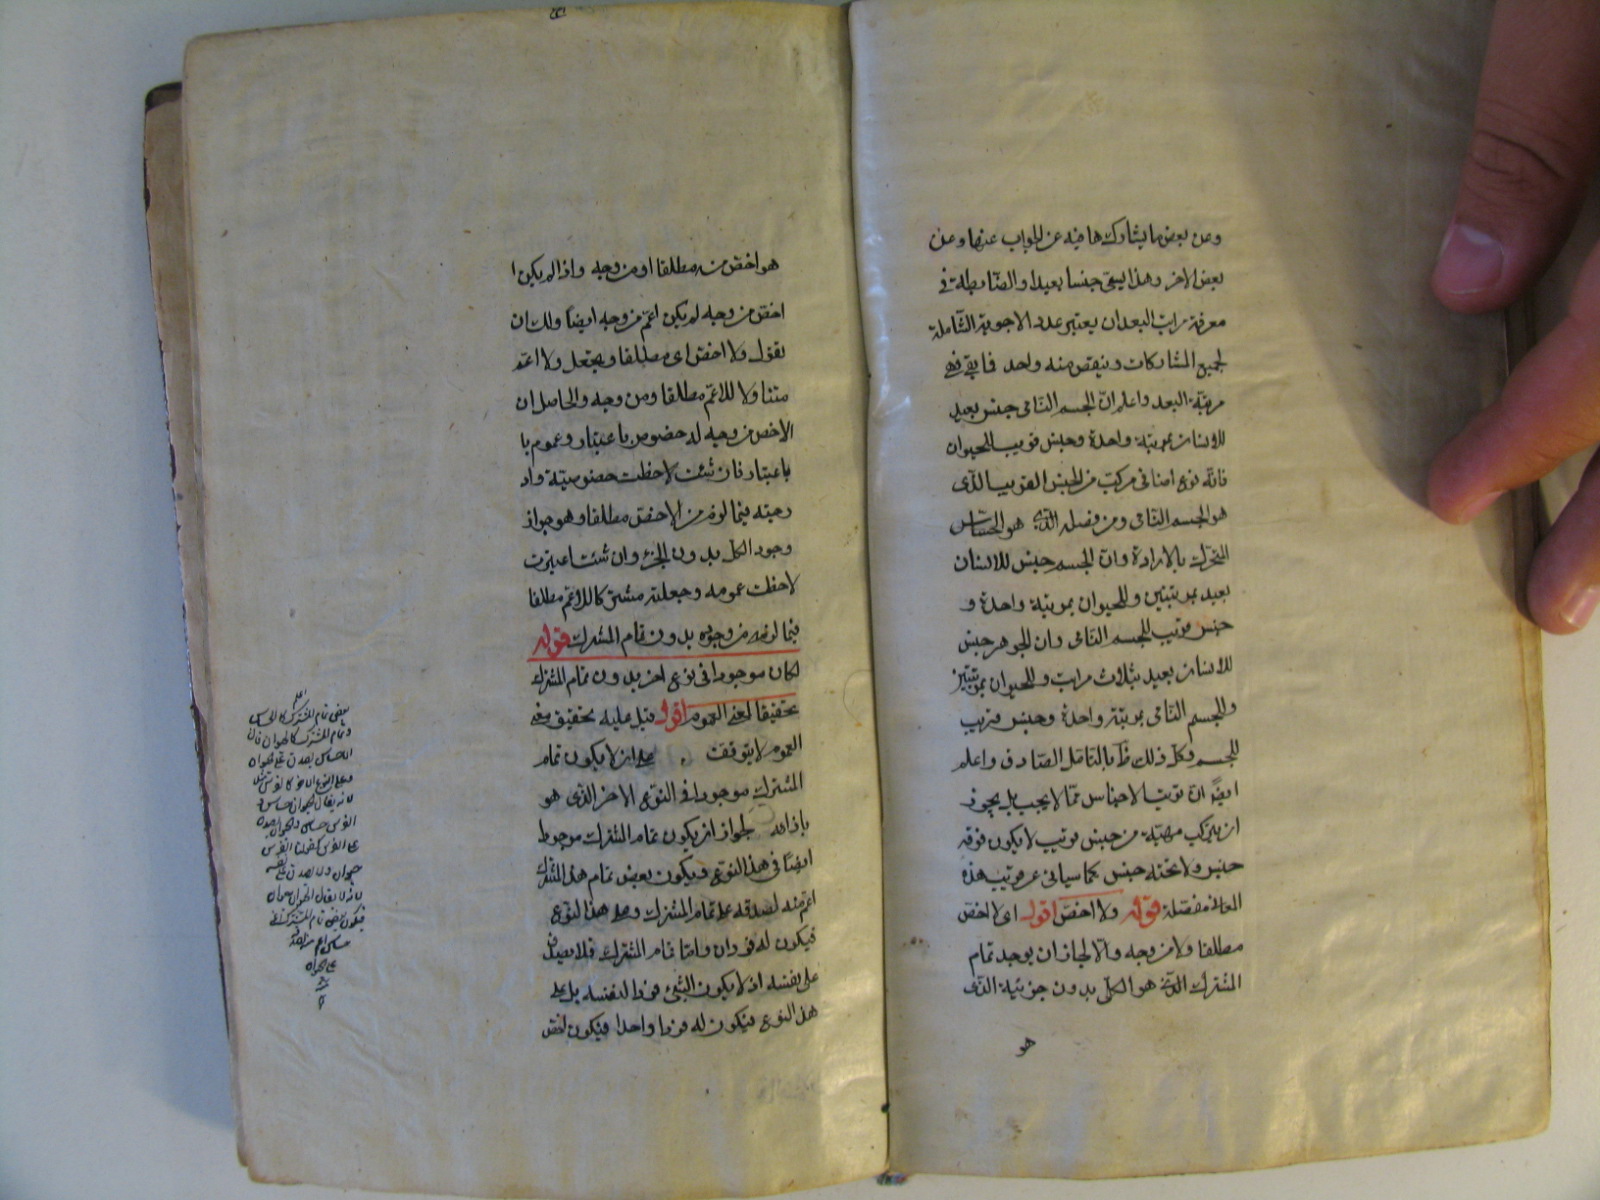 وعن بعض ما يشاركها فيه عن الجواب عنها وعن
بعض الاخر وهذا يسمى جنسا بعيدا والضابطة في
معرفة مراتب البعد ان يعتبر عدد الاجوبة الشاملة
لجميع المشاركات وينقص منه واحد فما بقي فهو
مرتبة البعد واعلم انّ الجسم النامى جنس بعيد
للانسان بمرتبة واحدة وجنس قريب للحيوان
فانّه نوع اضافى مركب من الجنس القريب الذى
هو الجسم النامى ومن فصله الذى هو الحساس
المتحرك بالارادة وانّ الجسم جنس للانسان
بعيد بمرتبتين وللحيوان بمرتبة واحدة و
جنس قريب للجسم النامى وان الجوهر جنس
للانسان بعيد بثلاث مراتب وللحيوان بمرتبتين
وللجسم النامى بمرتبة واحدة وجنس قريب
للجسم وكل ذلك ظ بالتامل الصادق واعلم
ايضًا انّ ترتيب الاجناس ممّا لا يجب بل يجوز
ان يتركب مهيّة من جنس قريب لا يكون فوقه
جنس ولا تحته جنس كما سياتى عن قريب هذه
المعانى مفصلة قوله ولا اخصّ اقول اى لا اخص
مطلقا ولا من وجه والّا لجاز ان يوجد تمام
المشترك الذى هو الكلّ بدون جزئية الذى
هو
هو اخصّ منه مطلقا او من وجه واذا لم يكن
اخصّ من وجه لم يكن اعمّ من وجه ايضًا ولك ان
تقول ولا اخصّ اى مطلقا ويجعل ولا اعمّ
متناولا للاعمّ مطلقا ومن وجه والحاصل ان
الاخص من وجه له خصوص باعتبار وعموم با
باعتبار فان شئت لاحظت خصوصيّته واد
رجته فيما لزم من الاخصّ مطلقا وهو جواز
وجود الكل بدون الجزء وان شئت
لاحظت عمومه وجعلته مشتركا للاعمّ مطلقا
فيما لزمه من وجوده بدون تمام المشترك قوله
لكان موجودا فى نوع اخر بدون تمام المشترك
تحقيقا لمعنى العموم اقول قيل عليه تحقيق معنى
العموم لا يتوقف على ان لا يكون تمام
المشترك موجودا فى النوع الاخر الذى هو
بازائه لجواز ان يكون تمام المشترك موجودا
ايضًا فى هذا النوع ويكون بعض تمام هذا المشترك
اعمّ منه لصدقه على تمام المشترك وعلى هذا النوع
فيكون له فردان وامّا تمام المشترك فلا يصدق
على نفسه اذ لا يكون الشئ فردا لنفسه بل على
هذا النوع فيكون له فردا واحدا فيكون اخص
بعض تمام المشترك كالحساس
وتمام المشترك كالحيوان فان
الحساس يصدق على الحيوان